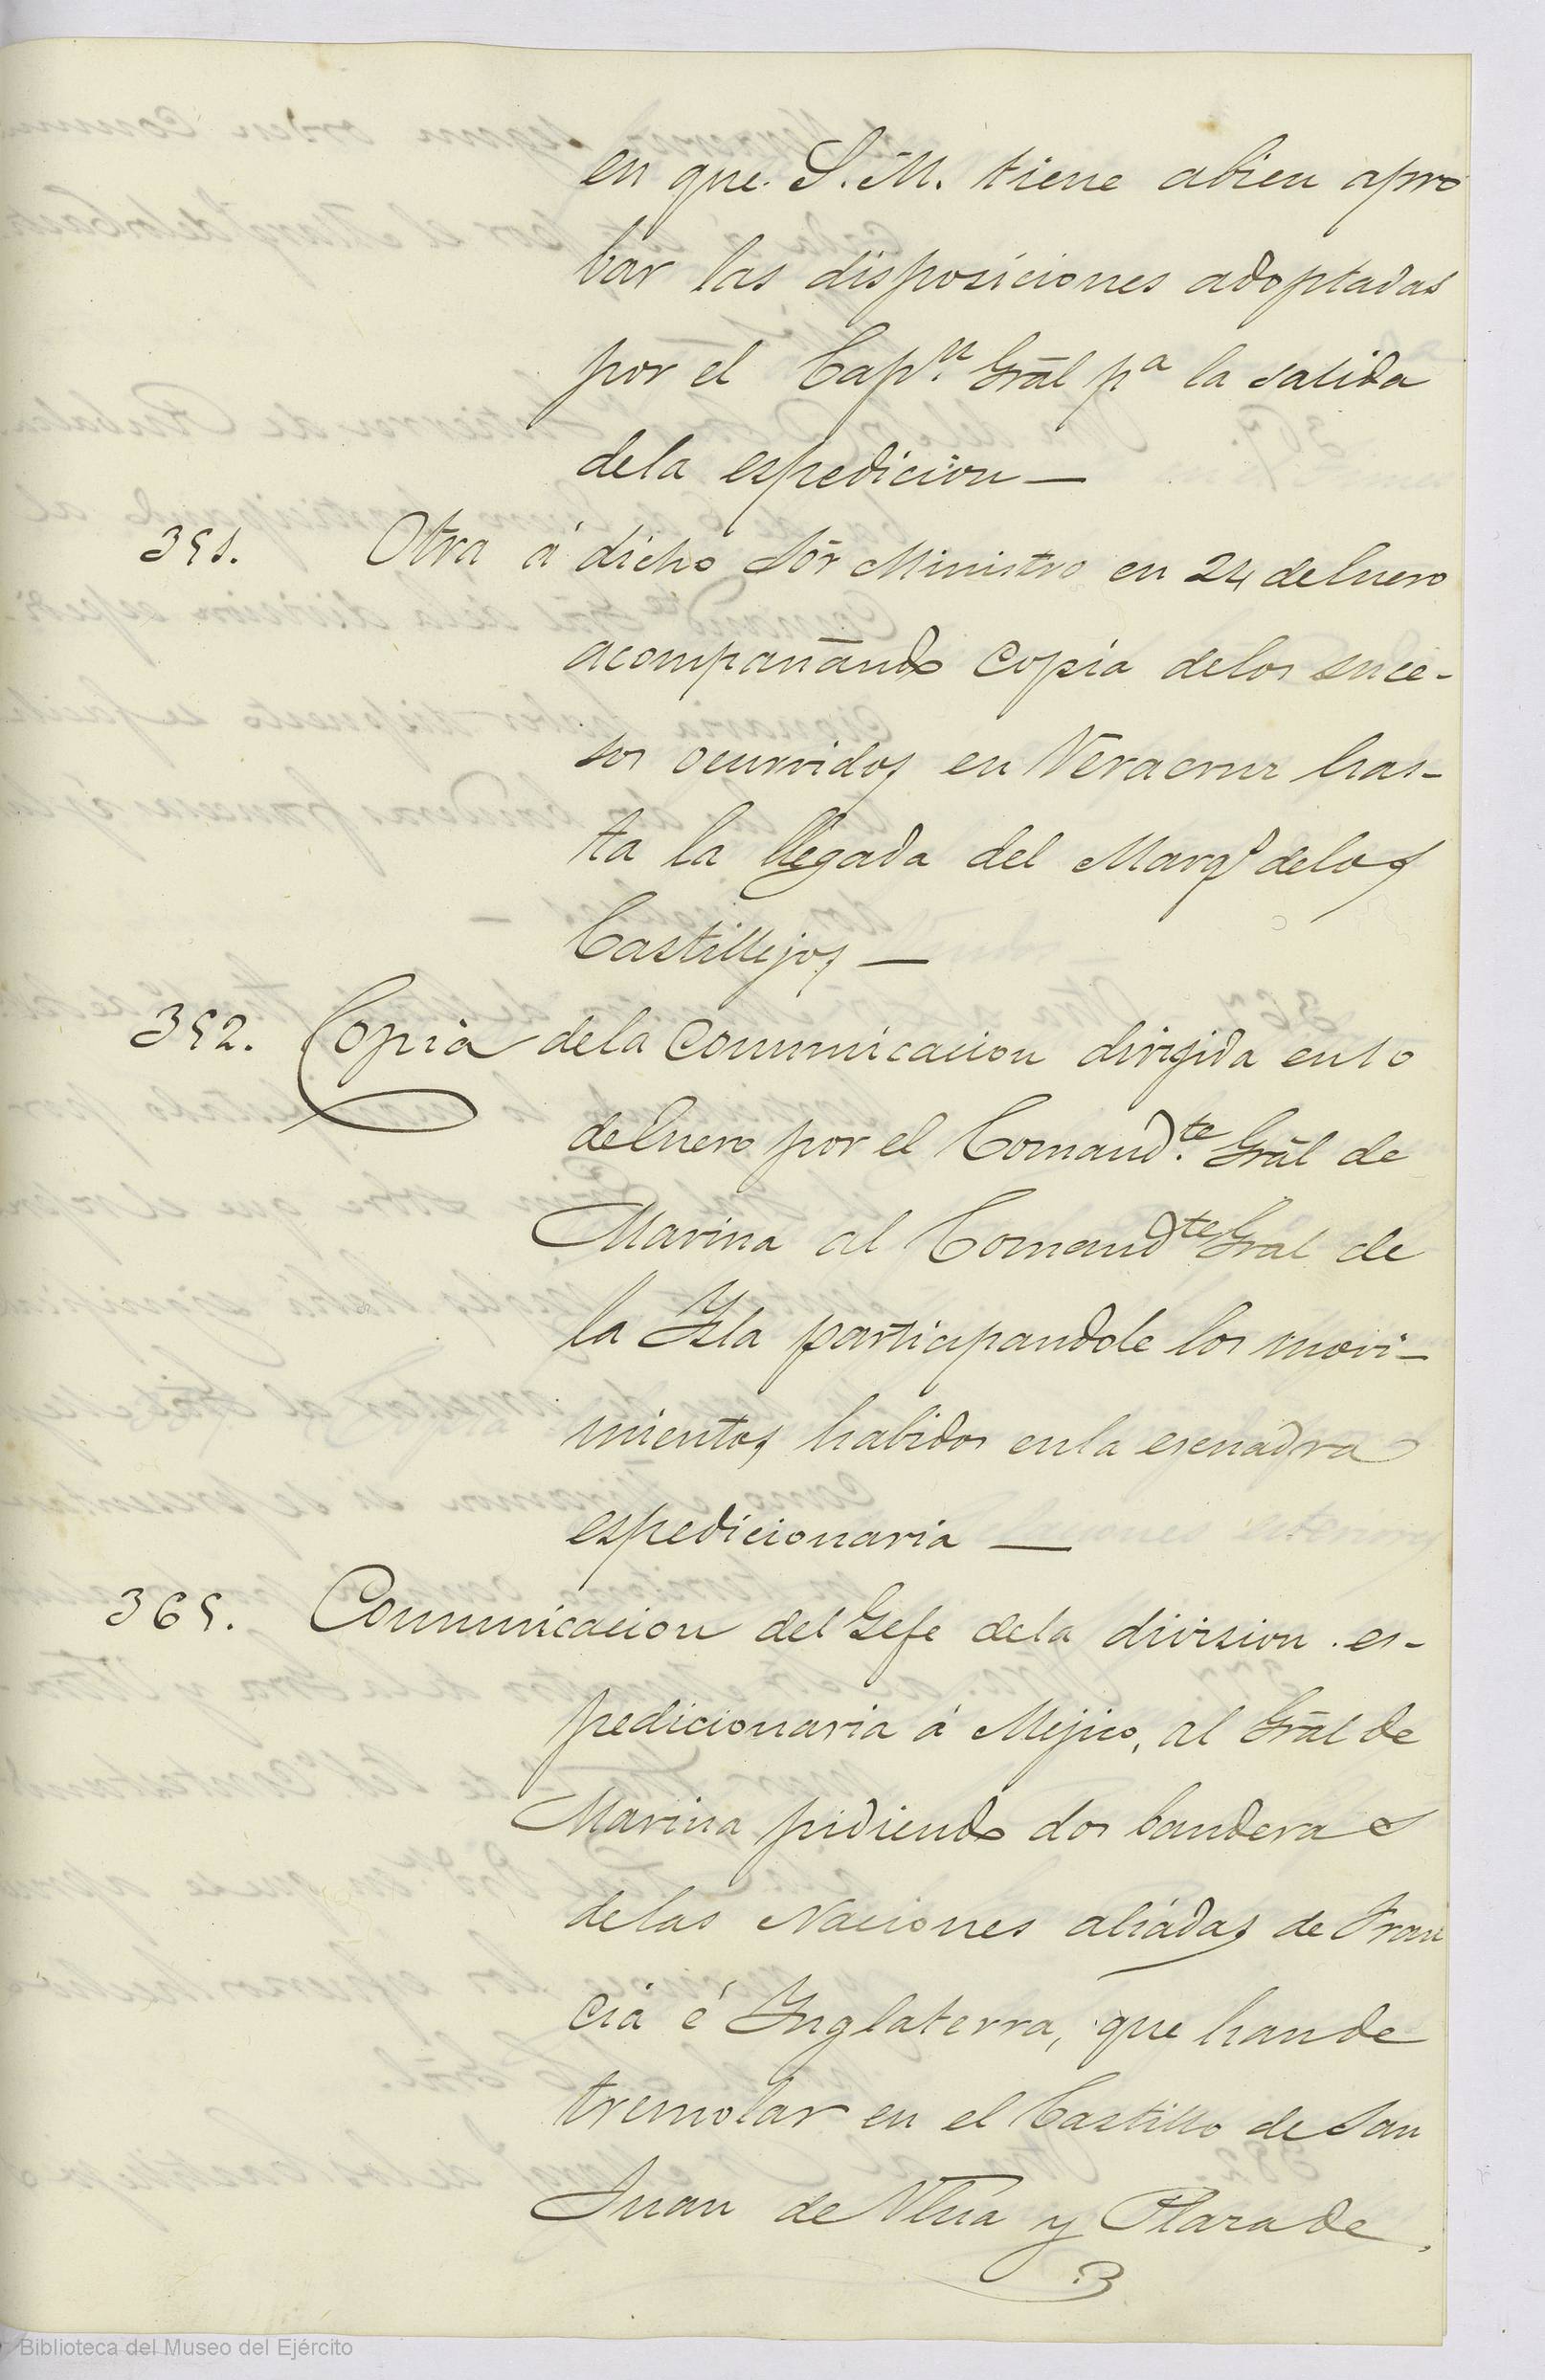 en que S. M. tiene abien apro
bar las disposiciones adoptadas
por el Cap.n Grãl pa la salida
dela espedicion —
351. Otra á dicho Sõr Ministro en 24 deEnero
acompañando copia delos suce-
sos ocurridos en Veracruz has-
ta la llegada del Marqs delos
Castillejos —
352. Copia dela comunicacion dirijida en 10
deEnero por el Comand.te Grãl de
Marina al Comandte Grãl de
la Ysla participandole los movi-
mientos habidos enla escuadra
espedicionaria —
365. Comunicacion del Gefe dela division es-
pedicionaria á Mejico, al Grãl de
Marina pidiendo dos banderas
delas Naciones aliadas de Fran
cia é Ynglaterra, que hande
tremolar en el Castillo de San
Juan de Ulua y Plaza de
Biblioteca del Museo del Ejército